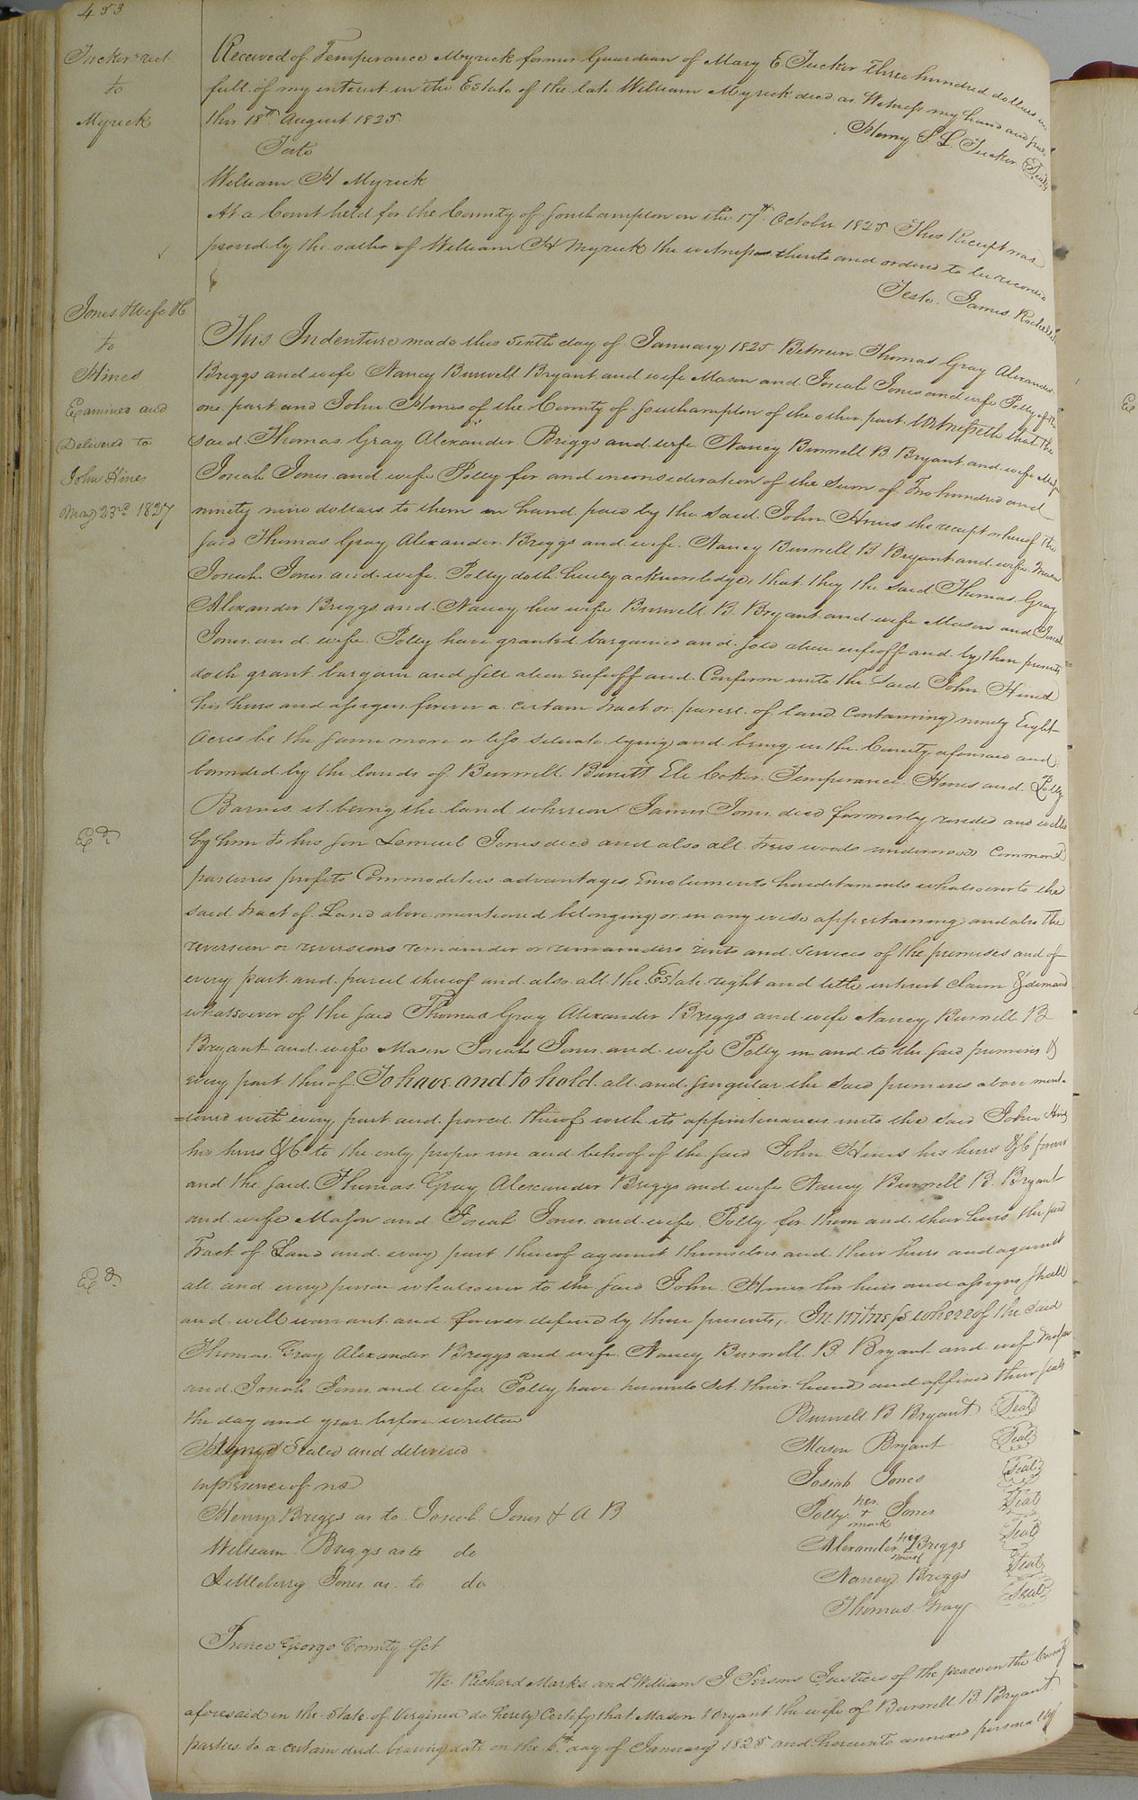 453
Tucker rect
to
Myrick
Received of Temperance Myrick former Guardian of Mary E Tucker three hundred dollars in
full of my interest in the Estate of the late William Myrick decd as Witness my hand and seal
this 18th August 1825
Henry S L Tucker Seal
Teste
William H Myrick
At a Court held for the County of Southampton on the 17th October 1825 This Receipt was
proved by the oaths of William H Myrick the witness thereto and ordered to be recorded
Teste James Rochelle
Jones & wife &C
to
Hines
Examined and
Delivered to
John Hines
May 23rd 1827
This Indenture made this sixth day of January 1825 Between Thomas Gray Alexander
Briggs and wife Nancy Burwell Bryant and wife Mason and Josiah Jones and wife Polly of the
one part and John Hines of the County of Southampton of the other part Witnesseth that the
said Thomas Gray Alexander Briggs and wife Nancy Burwell B Bryant and wife Mason
Josiah Jones and wife Polly for and in consideration of the Sum of Two hundred and
ninety nine dollars to them in hand paid by the said John Hines the receipt whereof the
said Thomas Gray Alexander Briggs and wife Nancy Burwell B Bryant and wife Mason
Josiah Jones and wife Polly doth hereby acknowledge, that they the said Thomas Gray
Alexander Briggs and Nancy his wife Burwell B. Bryant and wife Mason and Josiah
Jones and wife Polly have granted bargained and sold alien enfeoff and by these presents
doth grant bargain and sell alien enfeoff and Confirm unto the said John Hines
his heirs and assigns forever a certain tract or parcel of land Containing ninety Eight
Acres be the same more or less situate lying and being in the County aforesaid and
bounded by the lands of Burwell Barrett Eli Coker Temperance Hines and Polly
Barnes it being the land whereon James Jones decd formerly resided and willed
by him to his son Lemuel Jones decd and also all trees woods underwoods Commons
pastures profits Commodities advantages Emoluments hereditaments whatsoever to the
said tract of Land above mentioned belonging or in any wise appertaining and also the
reversion or reversions remainder or remainders rents and Services of the premises and of
every part and parcel thereof and also all the Estate right and title interest claim & demand
whatsoever of the said Thomas Gray Alexander Briggs and wife Nancy Burwell B
Bryant and wife Mason Josiah Jones and wife Polly in and to the said premises &
every part thereof To have and to hold all and singular the said premises above ment-
=ioned with every part and parcel thereof with its appurtenances unto the said John Hines
his heirs &C to the only proper use and behoof of the said John Hines his heirs &C forever
and the said Thomas Gray Alexander Briggs and wife Nancy Burwell B. Bryant
and wife Mason and Josiah Jones and wife Polly for them and their heirs the said
Tract of Land and every part thereof against themselves and their heirs and against
all and every person whatsoever to the said John Hines his heirs and assigns shall
and will warrant and forever defend by these presents, In witness whereof the said
Thomas Gray Alexander Briggs and wife Nancy Burwell B. Bryant and wife Mason
and Josiah Jones and wife Polly have hereunto set their hands and affixed their seals
the day and year before written
Burwell B Bryant Seal
Signed Sealed and delivered
Mason Bryant Seal
in presence of us
Josiah Jones Seal
Henry Briggs as to Josiah Jones & A B
Polly her + mark Jones Seal
William Briggs as to do
Alexander his mark Briggs Seal
Littleberry Jones as to do
Nancy Briggs Seal
Thomas Gray Seal
Prince George County Sct
We Richard Marks and William J Sersons Justices of the peace in the County
aforesaid in the State of Virginia do hereby Certify that Mason Bryant the wife of Burwell B. Bryant
parties to a certain deed bearing date on the 6th day of January 1825 and hereunto annexed personally